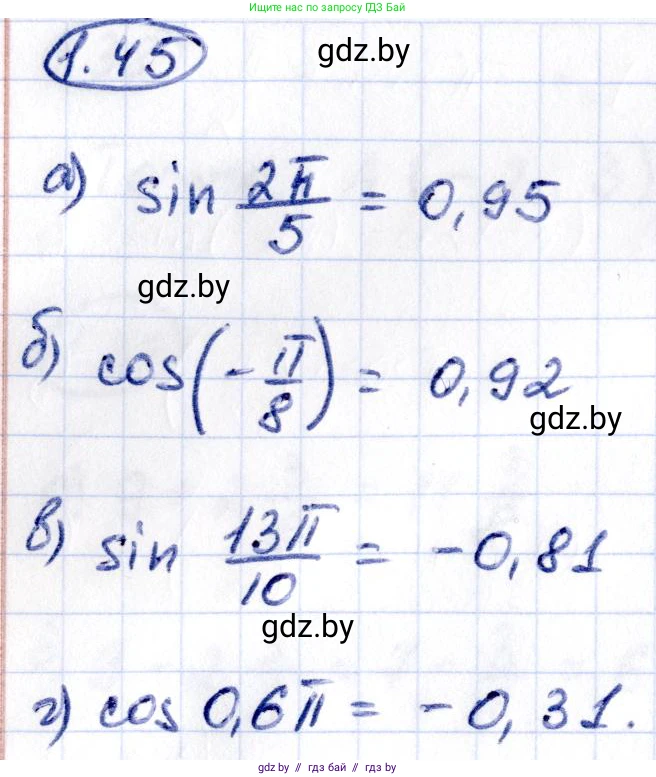 Ищите нас по запросу ГДЗ Бай
1.45
gdz.by
а) sin 2π/5 = 0,95
gdz.by
б) cos(-π/8) = 0,92
gdz.by
в) sin 13π/10 = -0,81
gdz.by
г) cos 0,6π = -0,31.
gdz.by // гдз бай // гдз by